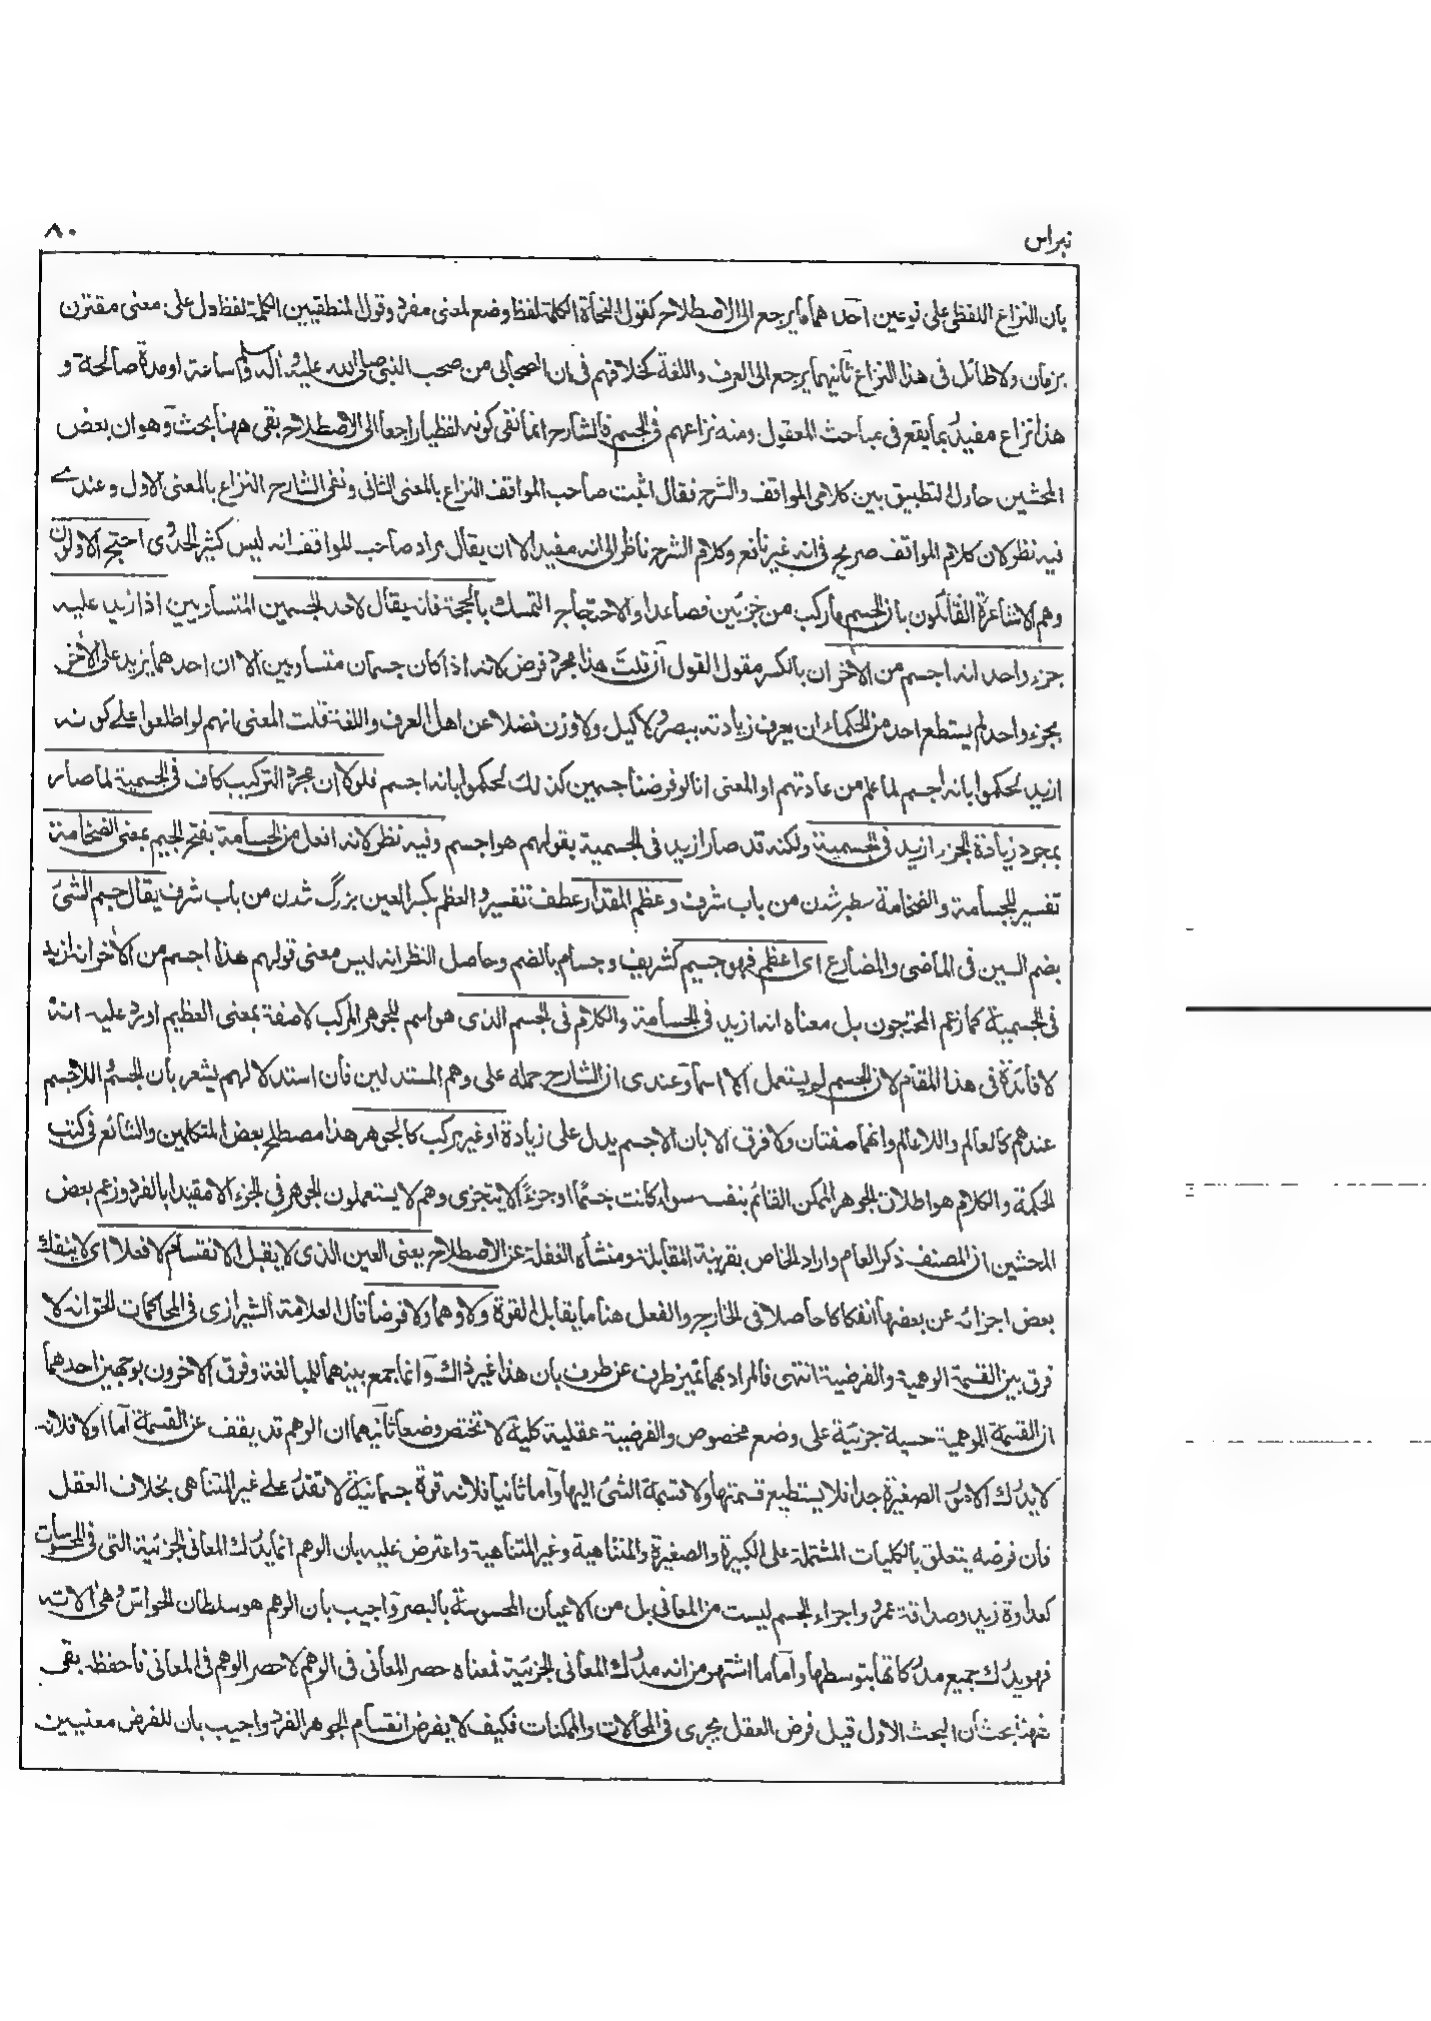 نبراس
٨٠
بان النزاع اللفظی علی نوعین احدهما ما یرجع الی الاصطلاح کقول النحاة الکلمة لفظ وضع لمعنی مفرد وقول المنطقیین الکلمة لفظ دل علی معنی مقترن
بزمان ولا طائل فی هذا النزاع ثانیهما یرجع الی العرف واللغة کخلافهم فی ان الصحابی من صحب النبی صلی الله علیه واله وسلم ساعة او مدة صالحة و
هذا نزاع مفید بما یقع فی مباحث المعقول ومنه نزاعهم فی الجسم فالشارح انما نفی کونه لفظیا راجعا الی الاصطلاح بقی ههنا بحث وهو ان بعض
المحشین حاول التطبیق بین کلامی المواقف والشرح فقال اثبت صاحب المواقف النزاع بالمعنی الثانی ونفی الشارح النزاع بالمعنی الاول وعندے
فیه نظر لان کلام المواقف صریح فی انه غیر نافع وکلام الشرح ناظر الی انه مفید الا ان یقال مراد صاحب المواقف انه لیس کثیر الجدوی احتج الاولون
وهم الاشاعرة القائلون بان الجسم ما رکب من جزئین فصاعدا والاحتجاج التمسک بالحجة فانه یقال لاحد الجسمین المتساویین اذا زید علیه
جزء واحد انه اجسم من الاخر ان بالکسر مقول القول ان قلت هذا مجرد فرض لانه اذا کان جسمان متساویین الا ان احدهما یزید علی الاخر
بجزء واحد لم یستطع احد من الحکماء ان یعرف زیادته ببصر ولا کیل ولا وزن فضلا عن اهل العرف واللغة قلت المعنی انهم لو اطلعوا علے کونه
ازید لحکموا بانه اجسم لما علم من عادتهم او المعنی انا لو فرضنا جسمین کذلک لحکموا بانه اجسم فلولا ان مجرد الترکیب کاف فی الجسمیة لما صار
بمجرد زیادة الجزء ازید فی الجسمیة ولکنه قد صار ازید فی الجسمیة بقولهم هو اجسم وفیه نظر لانه افعل من الجسامة بفتح الجیم بمعنی الضخامة
تفسیر للجسامة والضخامة سطبر شدن من باب شرف وعظم المقدار عطف تفسیر والعظم بکسر العین بزرگ شدن من باب شرف یقال جسم الشیٔ
بضم السین فی الماضی والمضارع ای اعظم فهو جسیم کشریف وجسام بالضم وحاصل النظر انه لیس معنی قولهم هذا اجسم من الاخر انه ازید
فی الجسمیة کما زعم المحتجون بل معناه انه ازید فی الجسامة والکلام فی الجسم الذی هو اسم للجوهر المرکب لا صفة بمعنی العظیم اورد علیه انه
لا فائدة فی هذا المقام لان الجسم لم یستعمل الا اسما وعندی ان الشارح حمله علی وهم المستدلین فان استدلالهم یشعر بان الجسم واللاجسم
عندهم کالعالم واللاعالم وانهما صفتان ولا فرق الا بان الاجسم یدل علی زیادة او غیر مرکب کالجوهر هذا مصطلح بعض المتکلمین والشائع فی کتب
الحکمة والکلام هو اطلاق الجوهر الممکن القائم بنفسه سواء کانت جسما او جزءً لا یتجزی وهم لا یستعملون الجوهر فی الجزء الا مقیدا بالفرد وزعم بعض
المحشین ان المصنف ذکر العام واراد الخاص بقرینة المقابلة ومنشأه الغفلة عن الاصطلاح یعنی العین الذی لا یقبل الانقسام لا فعلا ای لا ینفک
بعض اجزائه عن بعضها انفکاکا حاصلا فی الخارج والفعل هنا ما یقابل القوة ولا وهما ولا فرضا قال العلامة الشیرازی فی المحاکمات الحق انه لا
فرق بین القسمة الوهمیة والفرضیة انتهی فالمراد بهما تمیز طرف عن طرف بان هذا غیر ذاک وانما جمع بینهما للمبالغة وفرق الاخرون بوجهین احدهما
ان القسمة الوهمیة حسیة جزئیة علی وضع مخصوص والفرضیة عقلیة کلیة لا تختص وضعا ثانیهما ان الوهم قد یقف عن القسمة اما اولا فلانه
لا یدرک الامور الصغیرة جدا فلا یستطیع قسمتها ولا قسمة الشیٔ الیها واما ثانیا فلانه قوة جسمانیة لا تقدر علے غیر المتناهی بخلاف العقل
فان فرضه یتعلق بالکلیات المشتملة علی الکبیرة والصغیرة والمتناهیة وغیر المتناهیة واعترض علیه بان الوهم انما یدرک المعانی الجزئیة التی فی المحسوسات
کعداوة زید وصداقة عمرو واجزاء الجسم لیست من المعانی بل من الاعیان المحسوسة بالبصر واجیب بان الوهم هو سلطان الحواس وهی الاته
فهو یدرک جمیع مدرکاتها بتوسطها واما ما اشتهر من انه مدرک المعانی الجزئیة فمعناه حصر المعانی فی الوهم لا حصر الوهم فی المعانی فاحفظه بقی
ههنا بحثان البحث الاول قیل فرض العقل یجری فی المحالات والممکنات فکیف لا یفرض انقسام الجوهر الفرد واجیب بان للفرض معنیین